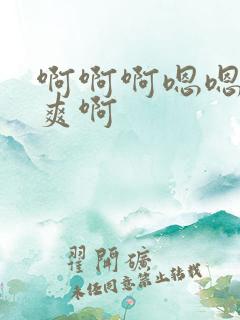 啊啊啊嗯嗯
爽啊
翟開礦
未经同意禁止转载